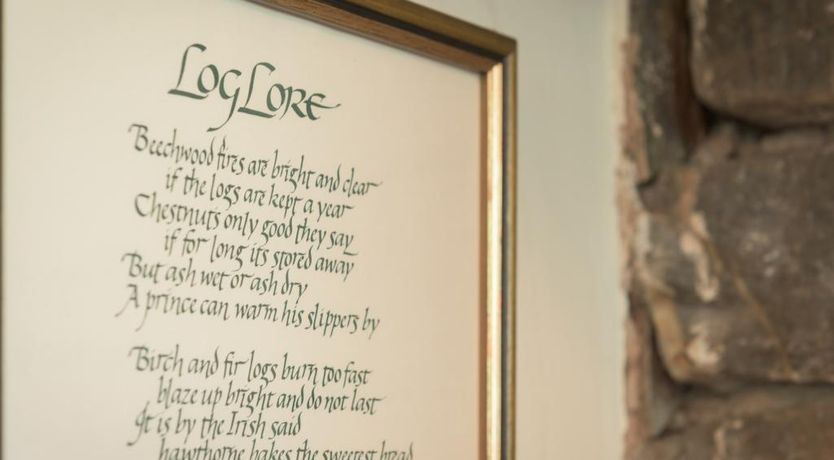 LogLore
Beechwood fires are bright and clear
if the logs are kept a year
Chestnuts only good they say
if for long its stored away
But ash wet or ash dry
A prince can warm his slippers by
Birch and fir logs burn too fast
blaze up bright and do not last
It is by the Irish said
hawthorne bakes the sweetest bread